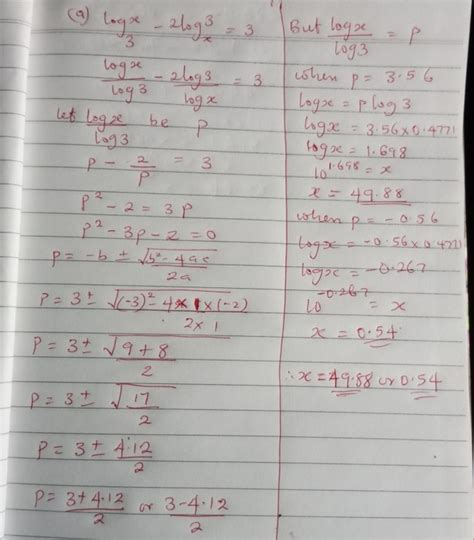 (a) log x/3 - 2log 3/x = 3
log x/log 3 - 2log 3/log x = 3
let log x/log 3 be p
p - 2/p = 3
p² - 2 = 3p
p² - 3p - 2 = 0
p = -b ± √b² - 4ac/2a
p = 3 ± √(-3)² - 4 x 1 x (-2)/2 x 1
p = 3 ± √9 + 8/2
p = 3 ± √17/2
p = 3 ± 4.12/2
p = 3 + 4.12/2 or 3 - 4.12/2
But log x/log 3 = p
when p = 3.56
log x = p log 3
log x = 3.56 x 0.4771
log x = 1.698
10^1.698 = x
x = 49.88
when p = -0.56
log x = -0.56 x 0.4771
log x = -0.267
10^-0.267 = x
x = 0.54
∴ x = 49.88 or 0.54